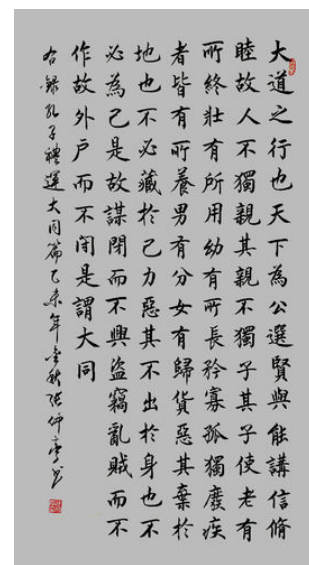 大道之行也天下為公選賢與能講信脩
睦故人不獨親其親不獨子其子使老有
所終壯有所用幼有所長矜寡孤獨廢疾
者皆有所養男有分女有歸貨惡其棄於
地也不必藏於己力惡其不出於身也不
必為己是故謀閉而不興盜竊亂賊而不
作故外户而不閉是謂大同
右錄孔子禮運大同篇乙未年金秋張仲亭书